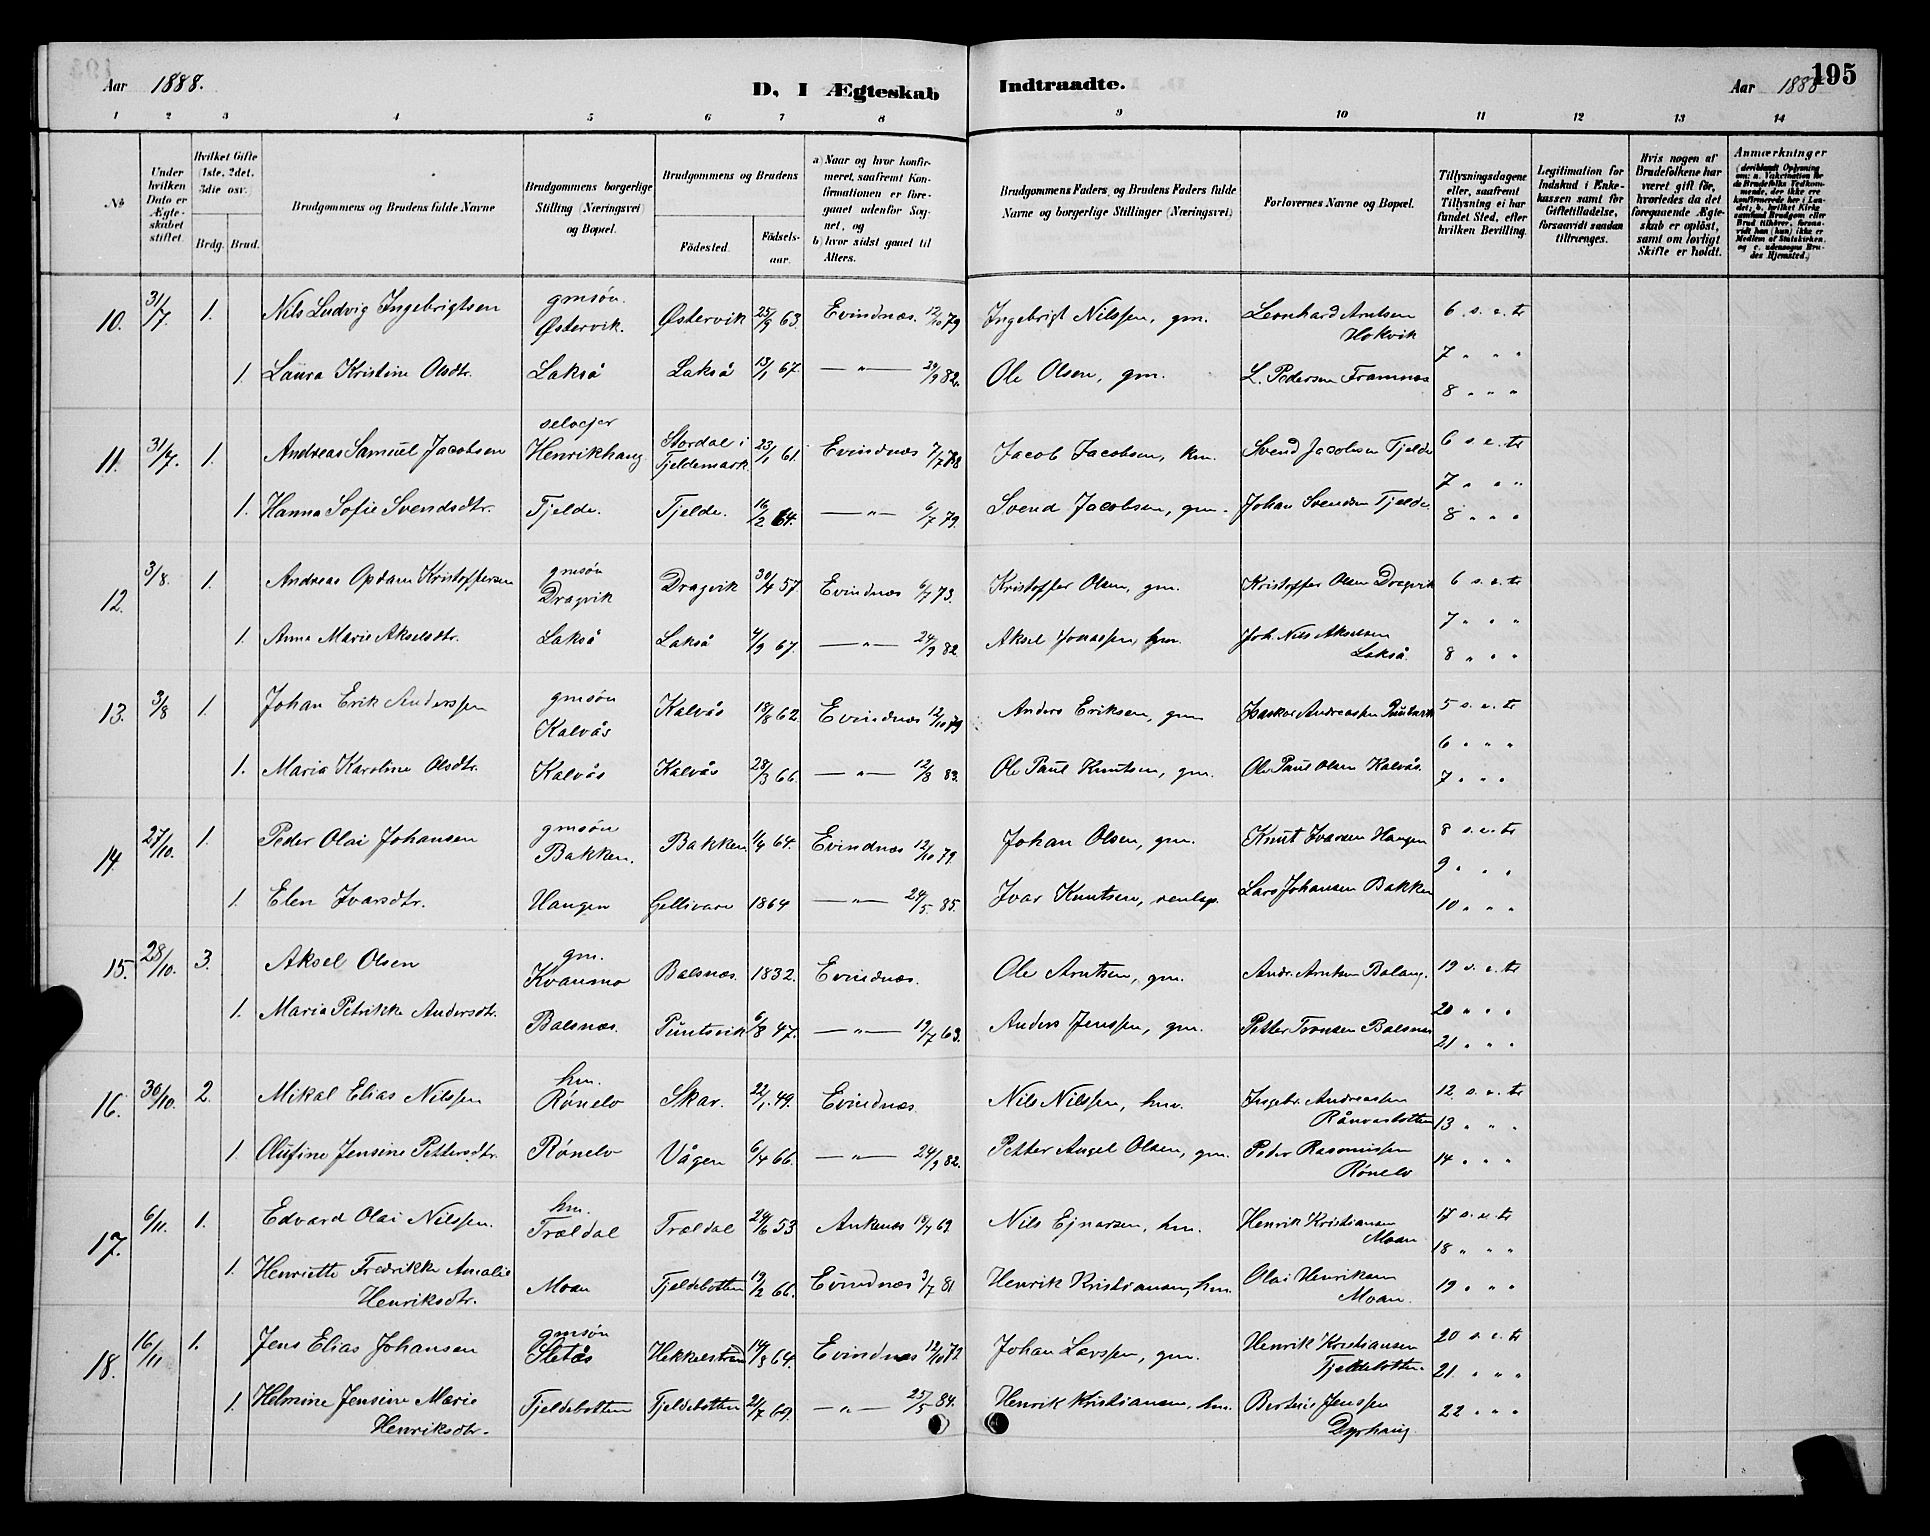 Aar 1888. D, I Ægteskab Indtraadte. Aar 1888 195
1 2 3 4 5 6 7 8 9 10 11 12 13 14
No
Under hvilken Dato er Ægteskabet stiftet.
Hvilket Gifte (1ste, 2det, 3die osv.
Brdg. Brud.
Brudgommens og Brudens fulde Navne
Brudgommens borgerlige Stilling (Næringsvei) og Bopæl.
Brudgommens og Brudens
Fødested. Fødselsaar.
a) Naar og hvor konfirmeret, saafremt Konfirmationen er foregaaet udenfor Sognet, og
b) hvor sidst gaaet til Alters.
Brudgommens Faders, og Brudens Faders fulde Navne og borgerlige Stillinger (Næringsvei)
Forlovernes Navne og Bopæl.
Tillysningsdagene eller, saafremt Tillysning ei har fundet Sted, efter hvilken Bevilling.
Legitimation for Indskud i Enkekassen samt for Giftetilladelse, forsaavidt saadan tiltrænges.
Hvis nogen af Brudefolkene har været gift før, hvorledes da det foregaaende Ægteskab er opløst, samt om lovligt Skifte er holdt.
Anmærkninger
(deriblandt Oplysning om: a. Vakcination for de Brudefolks Vedkommende, der ikke ere konfirmerede her i Landet; b. hvilket Kirkesamfund Brudgom eller Brud tilhører, forsaavidt han (hun) ikke er Medlem af Statskirken, og c. udensogns Brudes Hjemsted.)
10. 31/7. 1. Nils Ludvig Ingebrigtsen gmsøn. Østervik. Østervik 25/9 63. Evindnæs. 12/10 79 Ingebrigt Nilssen, gm. Leonhard Arntsen Hokvik 6. s. e. tr
7 " " "
1. Laura Kristine Olsdtr. Lakså Lakså 13/1 67. — " — 24/9 82. Ole Olsen, gm. L. Pedersen Framnæs
8 " " "
11. 31/7. 1. Andreas Samuel Jacobsen selvejer Henrikhaug Stordal i Tjeldemark 23/1 61. Evindnæs 7/7 78 Jacob Jacobsen, km. Svend Jacobsen Tjelde 6 s. e. tr
7 " " "
1. Hanna Sofie Svendsdtr. Tjelde. Tjelde. 16/2 64. — " — 6/7 79. Svend Jacobsen, gm. Johan Svendsen Tjelde
8 " " "
12. 3/8. 1. Andreas Opdam Kristoffersen gmsøn Dragvik Dragvik 30/4 57. Evindnæs 6/7 73. Kristoffer Olsen, gm. Kristoffer Olsen Dragvik 6 s. e. tr
7 " " "
1. Anna Marie Akselsdtr. Lakså Lakså 4/9 67. — " — 24/9 82. Aksel Jonassen, hm. Joh. Nils Akselsen Lakså.
8 " " "
13. 3/8 1. Johan Erik Anderssen gmsøn Kalvås Kalvås 18/8 62. Evindnæs 12/10 79 Anders Eriksen, gm Andreassen 5 s. e. tr
6 " " "
1. Maria Karoline Olsdtr. Kalvås Kalvås 28/3 66. — " — 12/8 83. Ole Paul Knutsen, gm. Ole Paul Olsen Kalvås.
7 " " "
14. 27/10. 1. Peder Olai Johansen gmsøn Bakken. Bakken 1/4 64. Evindnæs 12/10 79. Johan Olsen, gm. Knut Ivarsen Haugen 8 s. e. tr
9 " " "
1. Elen Ivarsdtr. Haugen Gellivare 1864 — " — 24/5. 85. Ivar Knutsen, renlap. Lars Johansen Bakken
10 " " "
15. 28/10. 3. Aksel Olsen gm. Kvanmo Balsnæs. 1832. Evindnæs. Ole Arntsen, gm. Andr. Arntsen 19 s. e. tr
20 " " "
1. Maria Petrikke Andersdtr. Balsnæs. Puntsvik 6/8 47. — " — 19/7 63. Anders Jenssen, gm. Petter Balsnæs
21 " " "
16. 30/10. 2. Mikal Elias Nilssen hm. Rönelv Skar. 22/1. 49. Evindnæs Nils Nilssen, hm. Ingebr. Andreassen Rånvasbotten 12. s. e. tr
13 " " "
1. Olufine Jensine Pettersdtr. Rönelv Vågen 6/4 66. — " — 24/9 82. Petter Angel Olsen, gm. Peder Rasmussen Rönelv
14 " " "
17. 6/11. 1. Edvard Olai Nilssen. hm. Trældal Trældal 24/6 53 Ankenæs 18/7 69 Nils Ejnarsen, hm. Henrik Kristiansen Moan 17 s. e. tr
18 " " "
1. Henriette Fredrikke Amalie Henriksdtr. Moan Tjeldebotten 19/2 66. Evindnæs 3/7 81 Henrik Kristiansen, hm. Olai Henriksen Moan.
19 " " "
18. 16/11 1. Jens Elias Johansen gmsøn Sletås Hekkelstrand 14/8 64. Evindnæs 12/10 79 Johan Larssen, gm. Henrik Kristiansen Tjeldebotten. 20 s. e. tr
21 " " "
1. Helmine Jensine Marie Henriksdtr. Tjeldebotten Tjeldebotten 21/7 69. — " — 25/5 84. Henrik Kristiansen, hm. Bertius Jenssen Dyrhaug
22 " " "